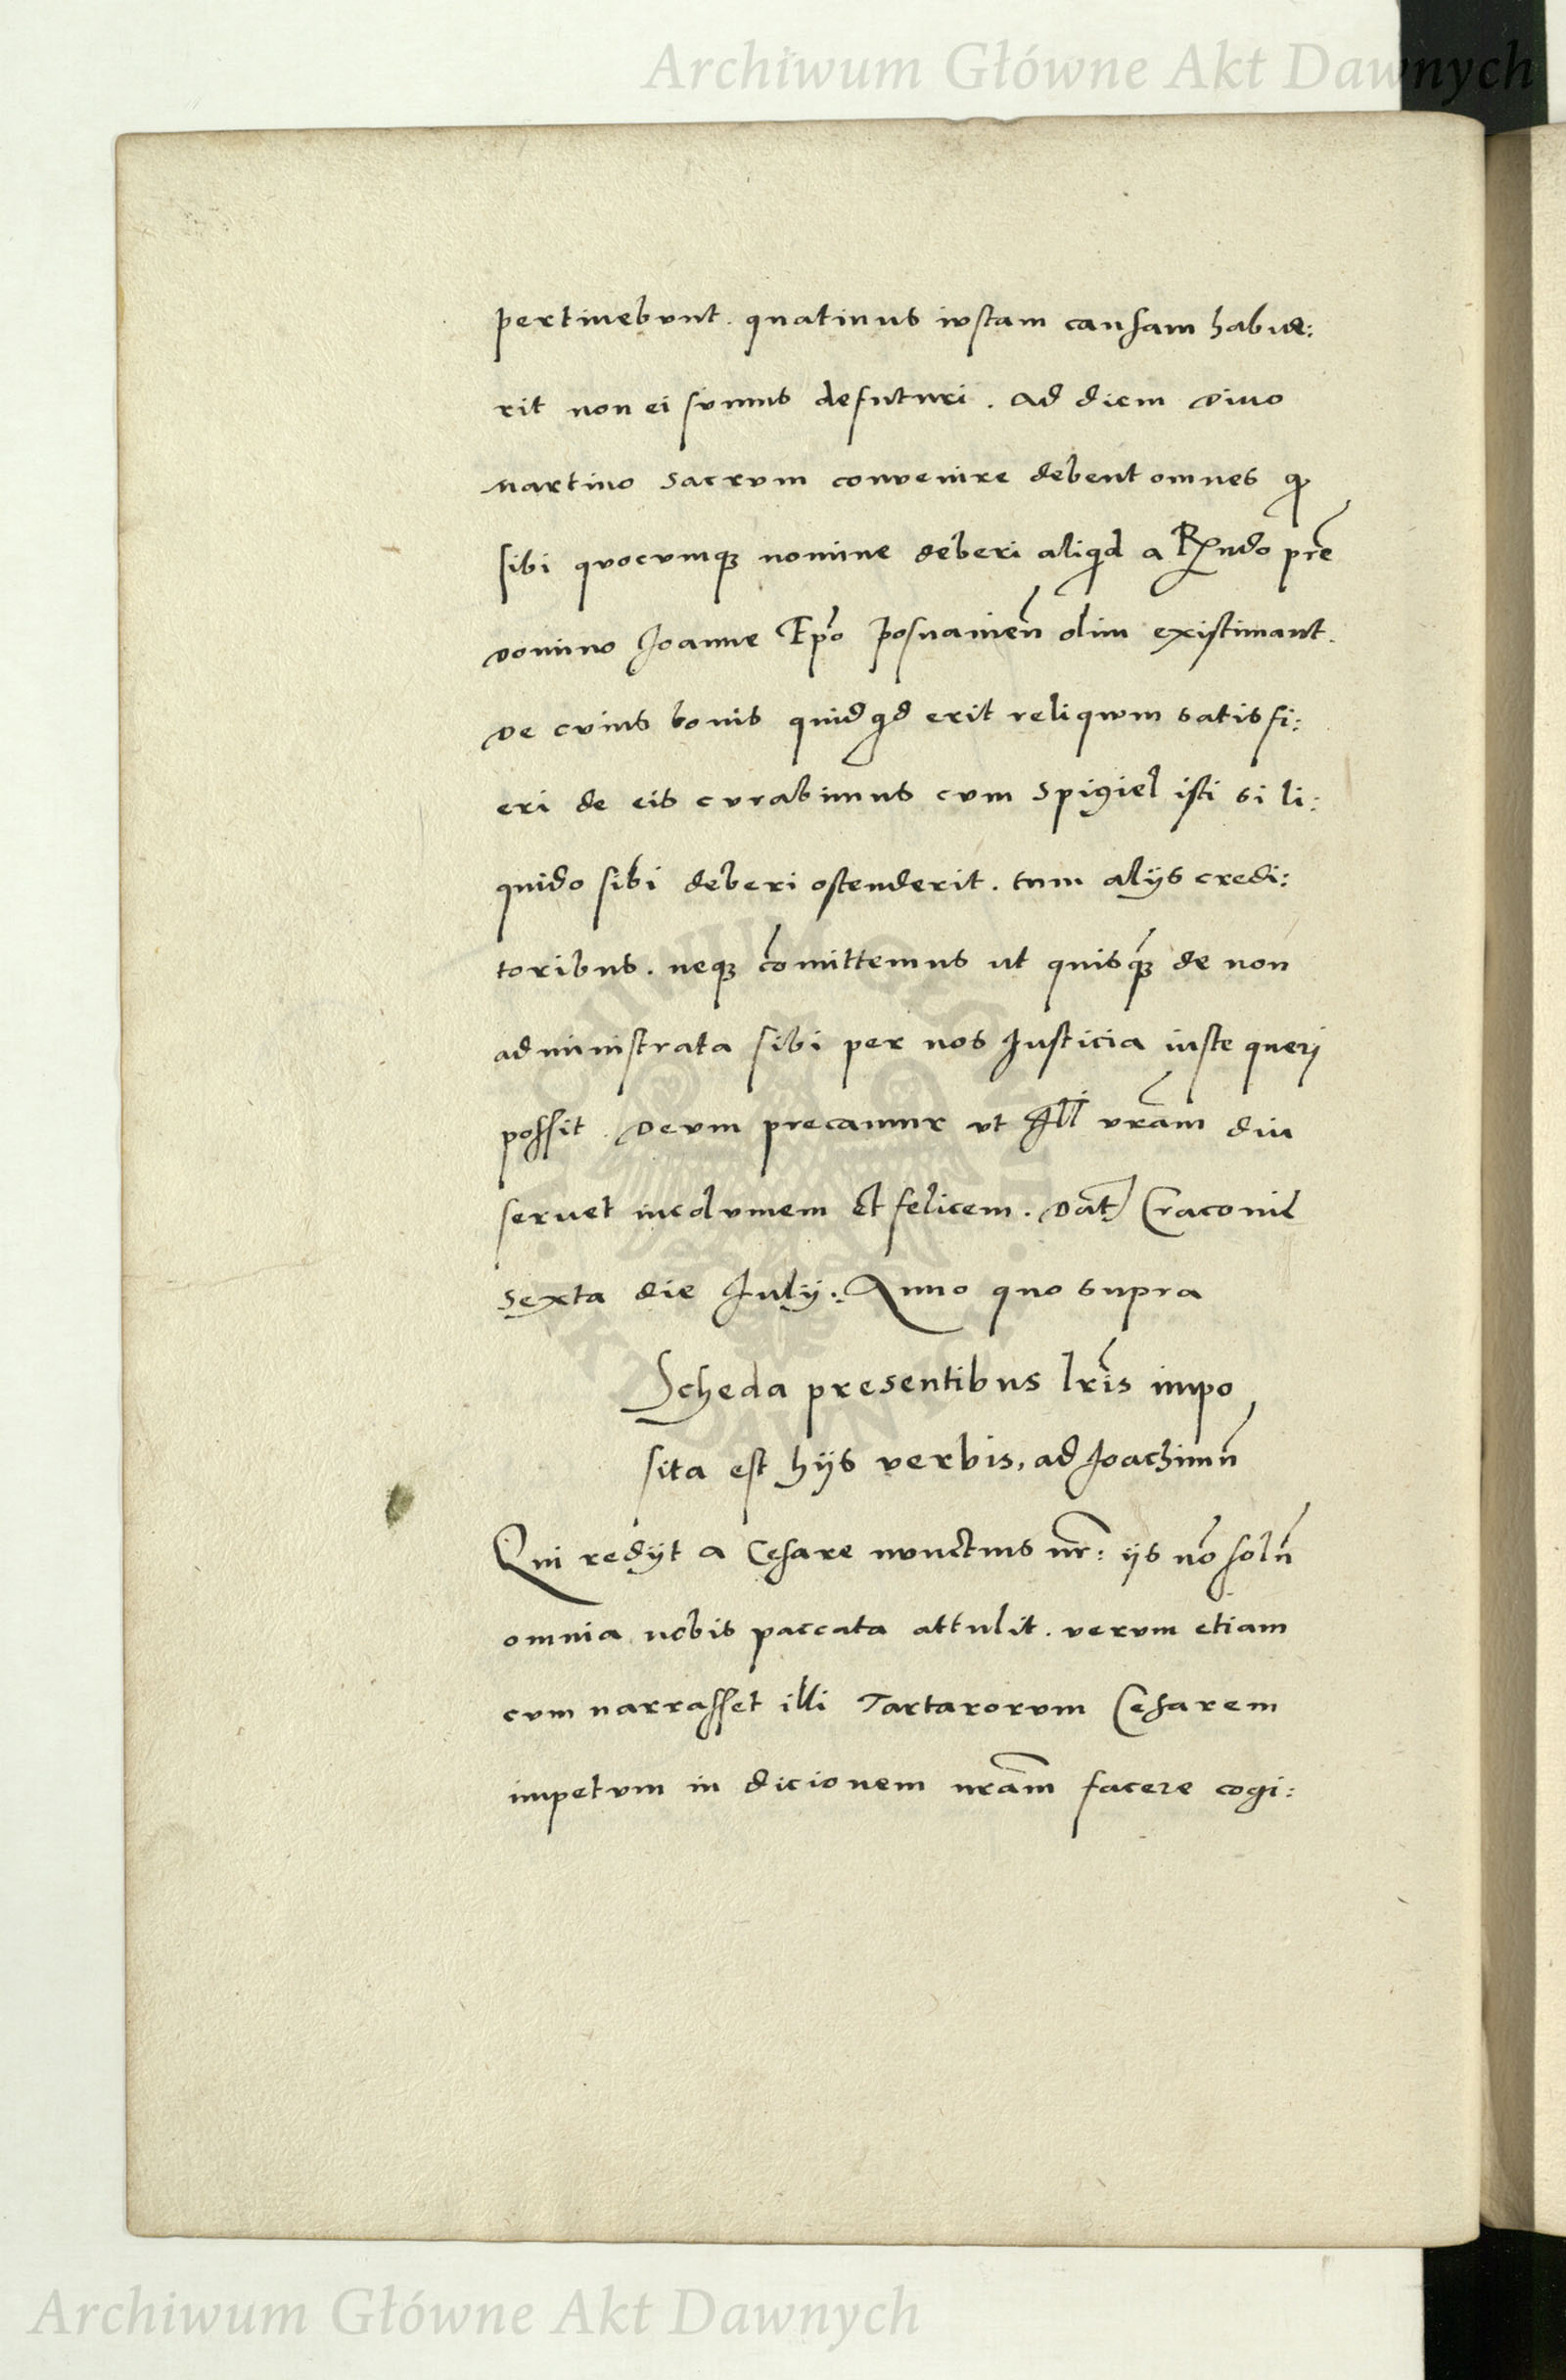 Archiwum Główne Akt Dawnych
pertinebunt. quatinus iustam causam habue:
rit non ei sumus defuturi. ad diem divo
martino sacrum convenire debent omnes q
sibi quocumq; nomine deberi aliqd a Rndo pre
domino Joanne Epo posnanien olim existimant.
De cuius bonis quidqd erit reliquum satisfi:
eri de eis curabimus cum Spigiel isti si li:
quido sibi deberi ostenderit. tum alijs credi:
toribus. neq; comittemus ut quisq; de non
administrata sibi per nos Justicia iuste queri
possit. Deum precamur ut Ill vram diu
servet incolumem et felicem. Dat Cracovie
sexta die Julij. Anno quo supra
Scheda presentibus lris impo
sita est hijs verbis, ad Joachimu
Qui redijt a Cesare nunctius nr: ijs no solu
omnia nobis paccata attulit. verum etiam
cum narrasset illi Tartarorum Cesarem
impetum in dicionem nram facere cogi:
Archiwum Główne Akt Dawnych